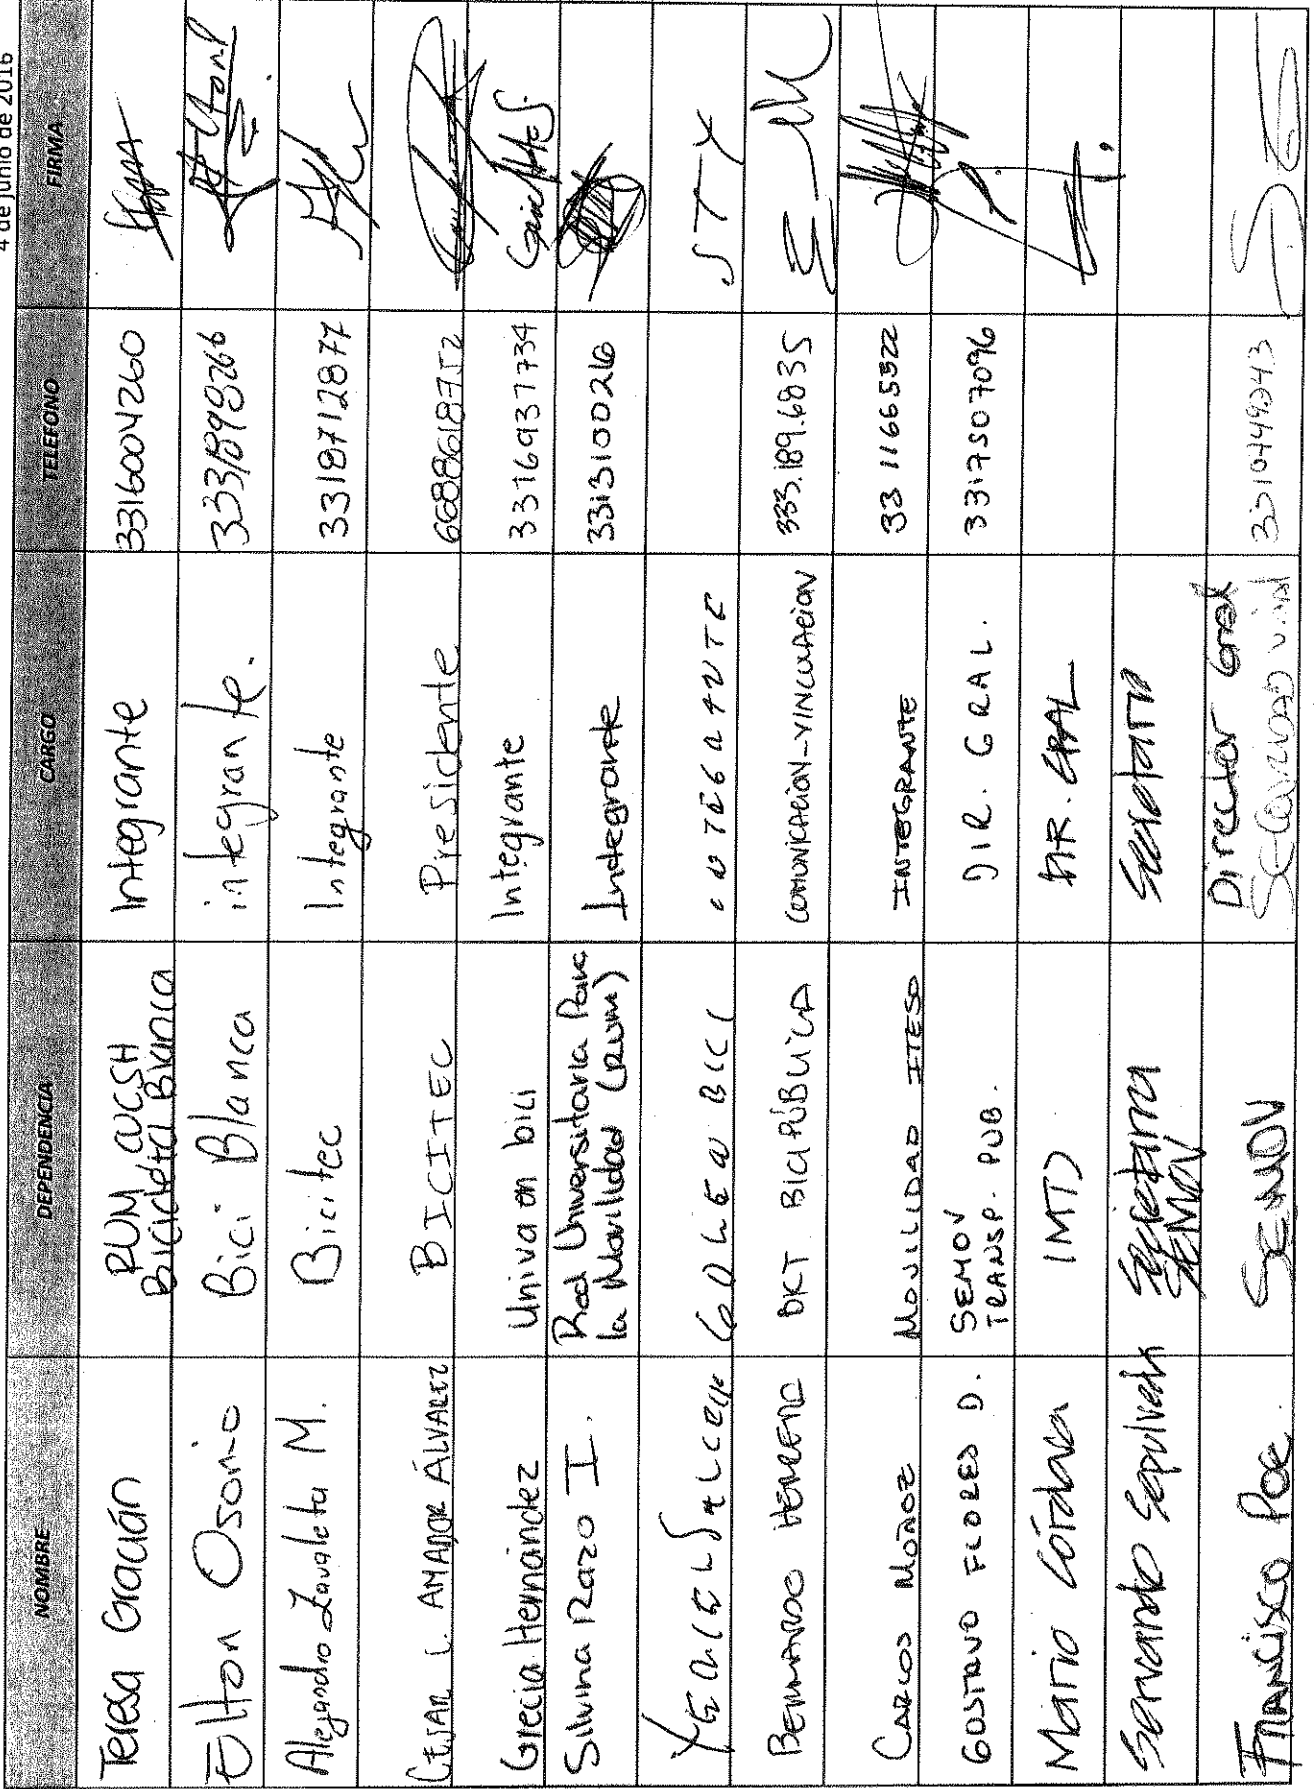 4 de junio de 2016
NOMBRE DEPENDENCIA CARGO TELEFONO FIRMA
Teresa Gracián RUM CUCSH Bicicleta Blanca Integrante 3316004260
Elton Osorio Bici Blanca integrante. 3331898266
Alejandro Zavaleta M. Bicitec Integrante 3318712877
CESAR I. AMADOR ÁLVAREZ BICITEC Presidente 6688618752
Grecia Hernández Univa en bici Integrante 3316937734
Silvina Razo I. Red Universitaria Para la Movilidad (RUM) Integrante 3313100216
GDL EN BICI INTEGRANTE STY
BERNARDO HERRERA BKT BICIPÚBLICA COMUNICACIÓN-VINCULACIÓN 333.189.6835
CARLOS MUÑOZ MOVILIDAD ITESO INTEGRANTE 33 11665322
GUSTAVO FLORES D. SEMOV TRANSP. PUB. DIR. GRAL. 3317507096
Mario Córdova IMTJ DIR. GRAL
Servando Sepulveda Secretaria SEMOV Secretario
FRANCISCO POE. SEMOV Director Gral SEGURIDAD Vial 3310449343